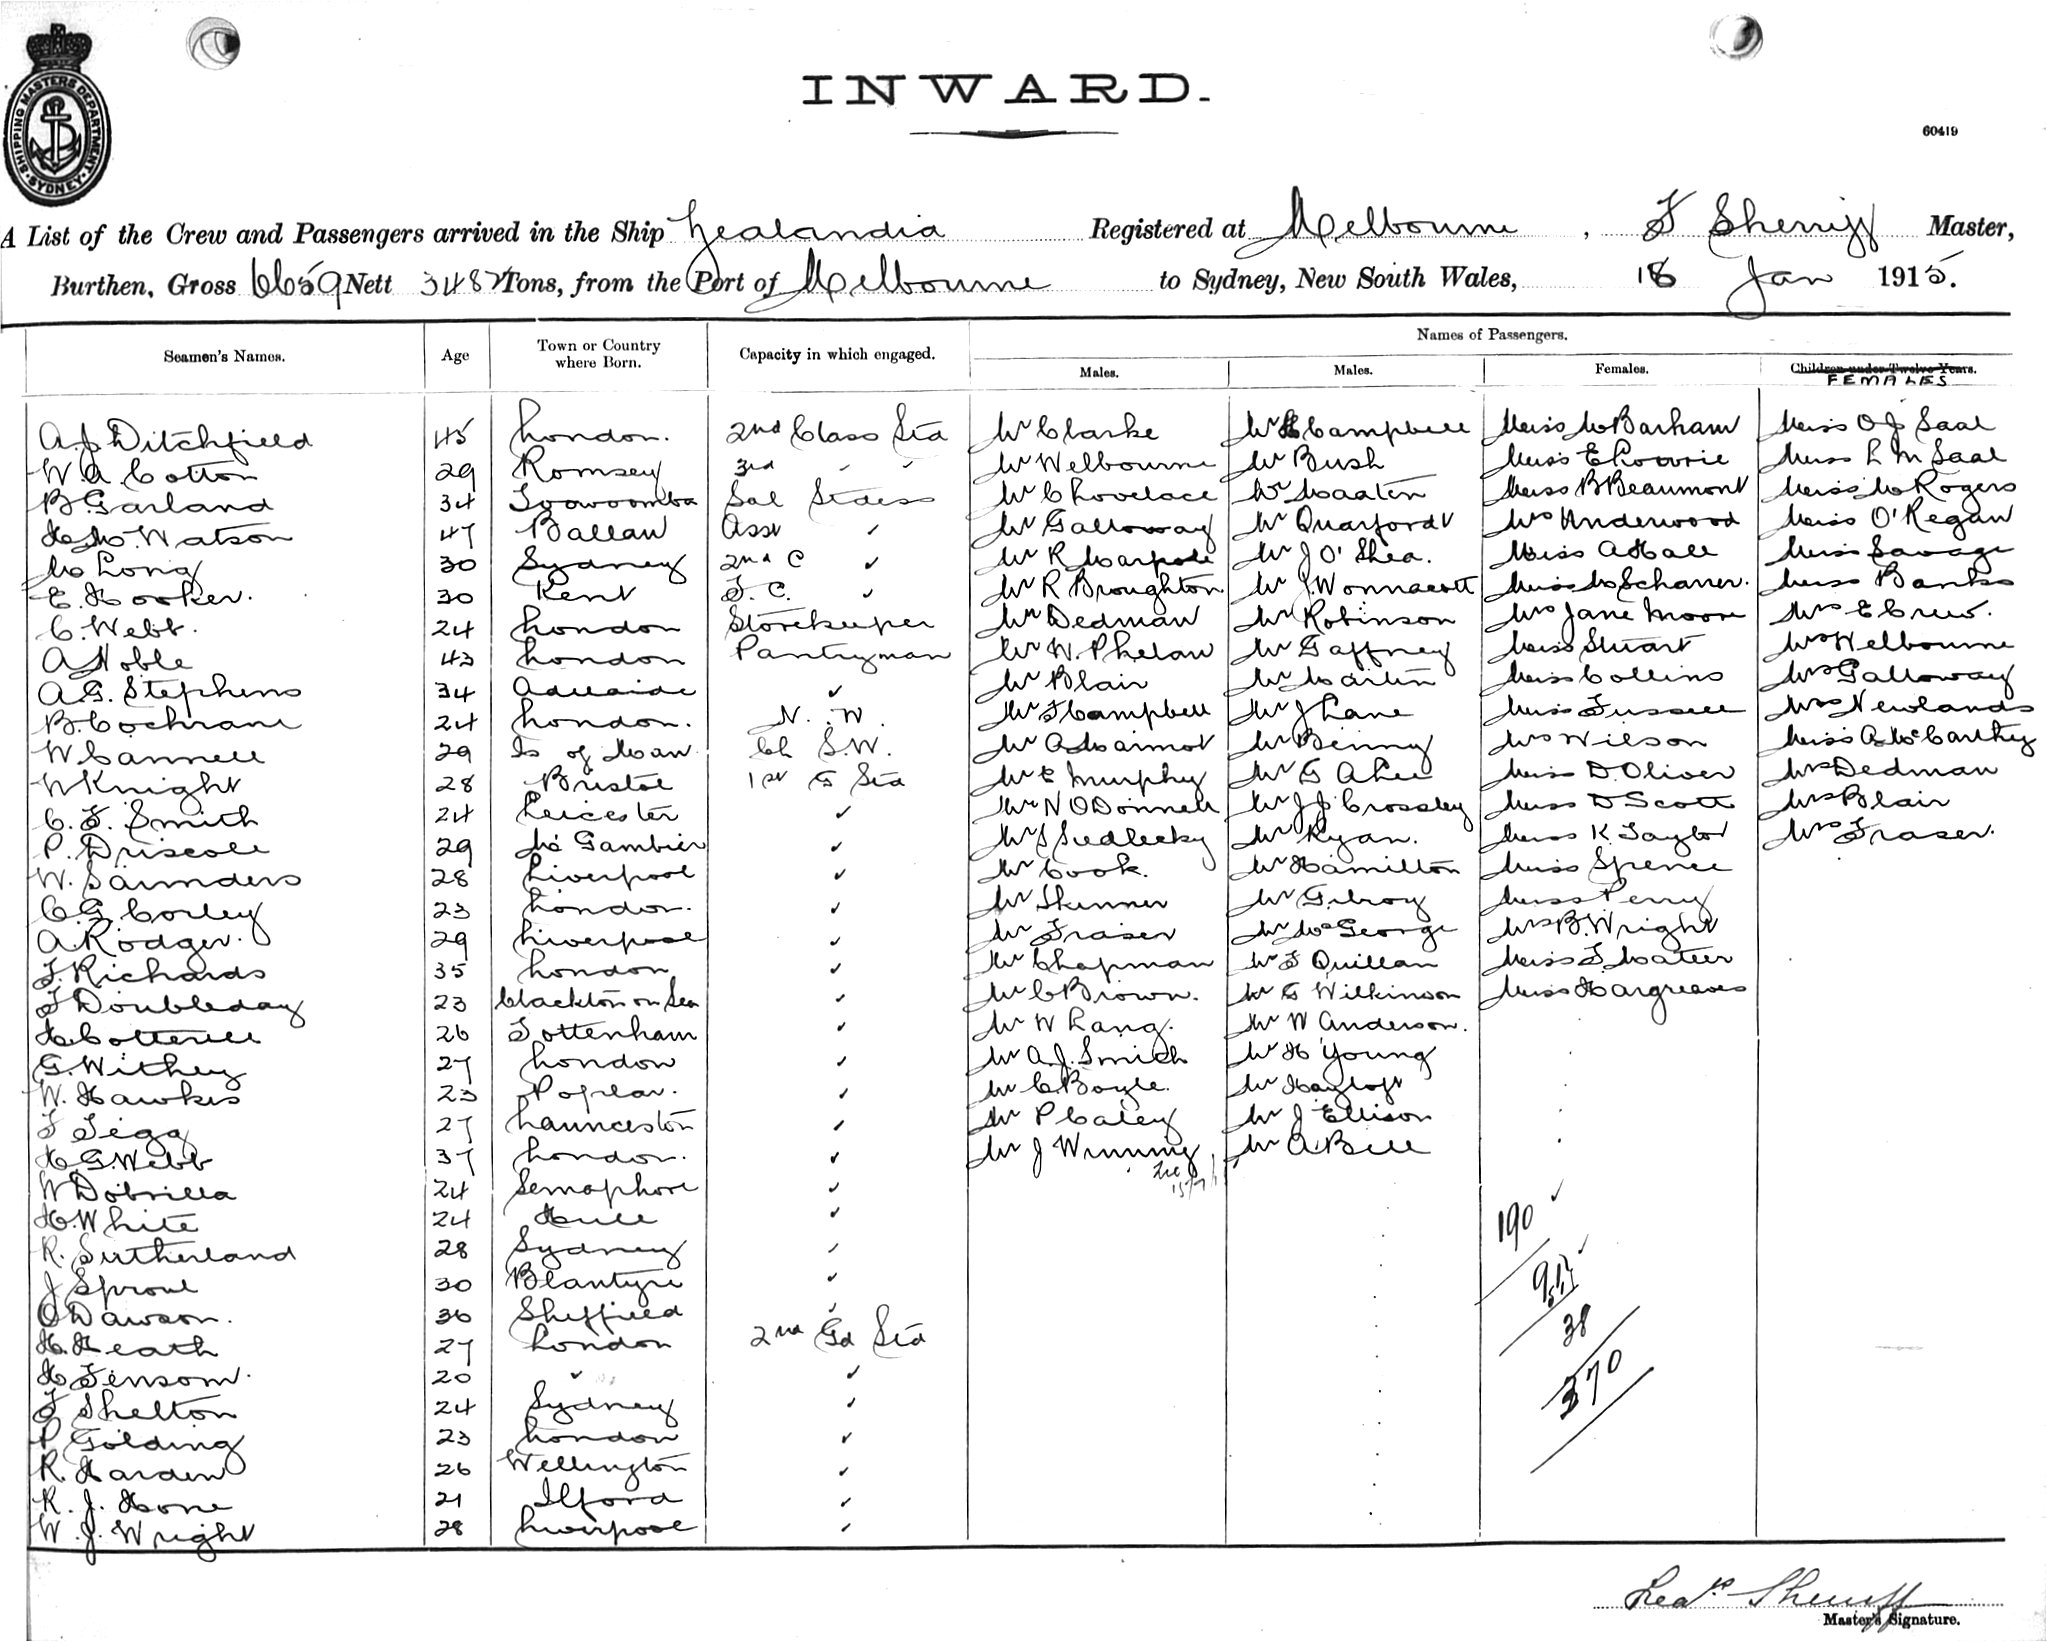 SHIPPING MASTERS DEPARTMENT
SYDNEY
INWARD.
60419
A List of the Crew and Passengers arrived in the Ship Zealandia Registered at Melbourne, F Sherriff Master,
Burthen, Gross 6659 Nett 3487 Tons, from the Port of Melbourne to Sydney, New South Wales, 18 Jan 1915.
Names of Passengers.
Seamen's Names. Age Town or Country where Born. Capacity in which engaged. Males. Males. Females. Children under Twelve Years.
FEMALES
A.J Ditchfield 45 London. 2nd Class Std Mr Clarke Mr Campbell Miss M Barham Miss O J Saal
W. A. Cotton 29 Romsey 3rd " " Mr Welbourne Mr Bush Miss E Lowrie Miss L M Saal
B Garland 34 Toowoomba Sal Stdess Mr C Lovelace Mr Maaten Miss B Beaumont Miss M Rogers
H. M. Watson 47 Ballan Asst ✓ Mr Galloway Mr Quarfordt Mrs Underwood Miss O'Regan
M Long 30 Sydney 2nd C ✓ Mr R Marpole Mr J O'Shea. Miss A Hall Miss Savage
E. Hooker. 30 Kent F. C. ✓ Mr R Broughton Mr J. Wonnacott Miss M Schaner. Miss Banks
C. Webb. 24 London Storekeeper Mr Dedman Mr Robinson Mrs Jane Moore Mrs E Crew.
A Noble 43 London Pantryman Mr W. Phelan Mr Gaffney Miss Stuart Mrs Welbourne
A. G. Stephens 34 Adelaide ✓ Mr Blair Mr Martin Miss Collins Mrs Galloway
B. Cochrane 24 London. N. W. Mr F Campbell Mr J Lane Miss Fussell Mrs Newlands
W Cannell 29 Is of Man Ch S.W. Mr A Maimot Mr Binny Mrs Wilson Miss A McCarthy
W Knight 28 Bristol 1st G Std Mr E Murphy Mr G A Lee Miss D. Oliver Mrs Dedman
C. F. Smith 24 Leicester ✓ Mr N O Donnell Mr J J Crossley Miss D Scott Mrs Blair
P. Driscoll 29 Mt Gambier ✓ Mr S Siedlecky Mr Ryan. Miss K Taylor Mrs Fraser.
W. Saunders 28 Liverpool ✓ Mr Cook. Mr Hamilton Miss Spence
C. G. Corley 23 London. ✓ Mr Skinner Mr Gilroy Miss Perry
A Rodger. 29 Liverpool ✓ Mr Fraser Mr McGeorge Mrs B. Wright
F. Richards 35 London ✓ Mr Chapman Mr F Quillan Miss F Mateer
F Doubleday 23 Clackton on Sea ✓ Mr C Brown. Mr G Wilkinson Miss Hargreaves
H Cotterill 26 Tottenham ✓ Mr W Lang. Mr W Anderson.
G. Withey 27 London ✓ Mr A. J. Smith Mr H Young
W. Hawkes 23 Poplar. ✓ Mr C. Boyle. Mr Haycroft
F Tigg 27 Launceston ✓ Mr P Caley Mr J Ellison
H G. Webb 37 London. ✓ Mr J Winning Mr A Bell
W Dobrilla 24 Semaphore ✓
H. White 24 Hull ✓ 190 ✓
R. Sutherland 28 Sydney ✓
J Sproul 30 Blantyre ✓
O Dawson. 36 Sheffield ✓ 38
H. Heath 27 London 2nd Gd Std
H Finsom. 20 " ✓ 370
F Shelton 24 Sydney ✓
P Golding 23 London ✓
R. Harden 26 Wellington ✓
R. J. Hone 21 Ilford ✓
W. J. Wright 28 Liverpool ✓
Fredk Sherriff
Master's Signature.